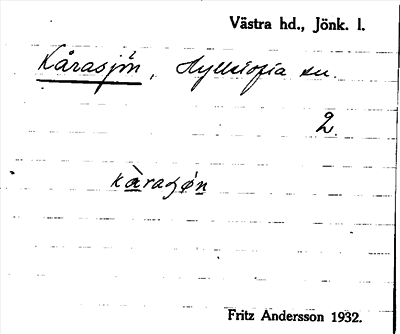 Västra hd., Jönk. l.
Kårasjön, Hylletofta sn.
2.
kàrasjøn
Fritz Andersson 1932.